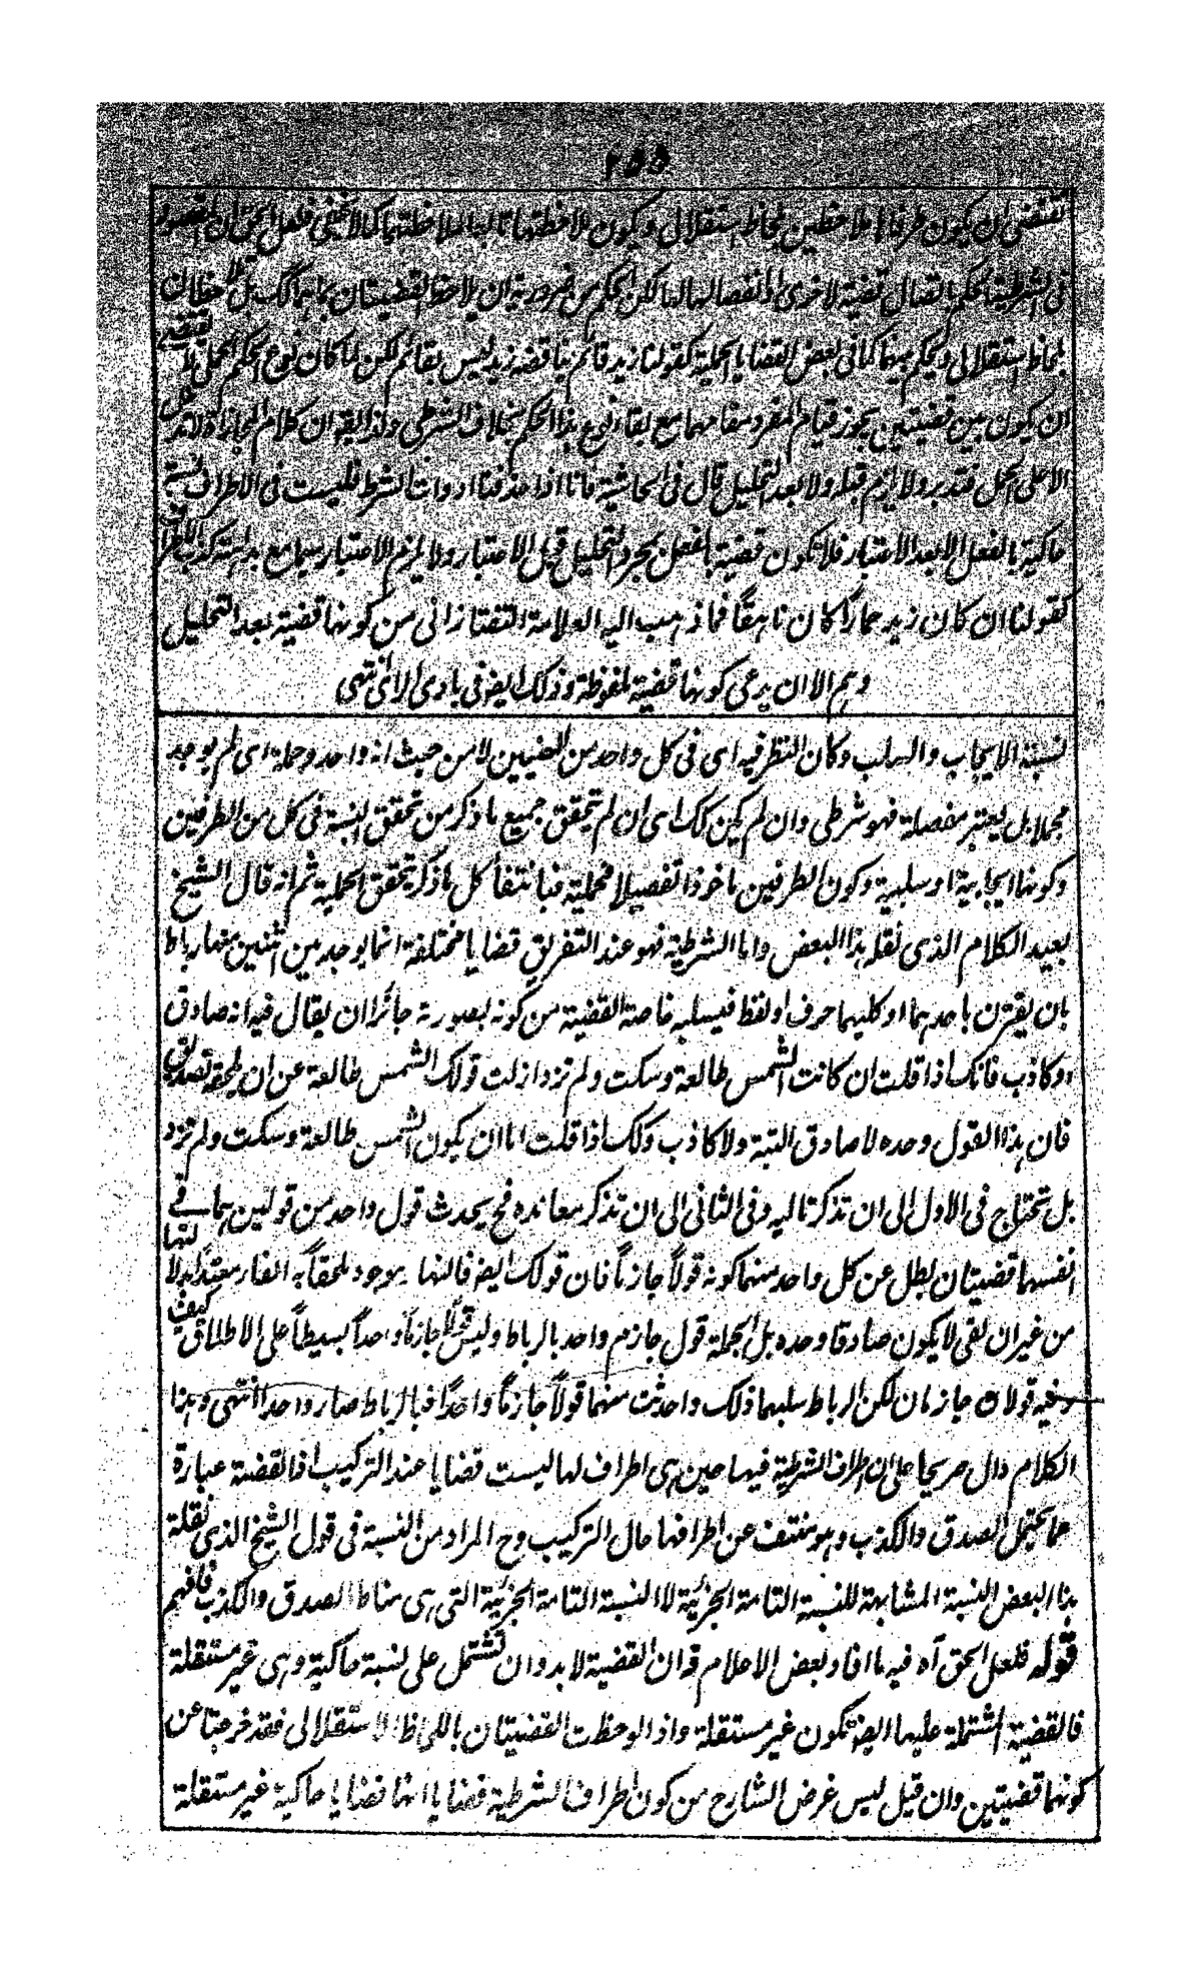 ٢٥٥
تقتضى ان يكون طرفاها ملاحظين بلحاظ استقلالى ويكون ملاحظتهما تابعا لملاحظتهما كما لا يخفى فلعل الحق ان المقصود
فى الشرطية الحكم باتصال قضية لاخرى او انفصالها لها لكن الحكم من ضرورية ان يلاحظ القضيتان بما هما كك بل تلاحظان
بلحاظ استقلالى ويحكم بينهما كما فى بعض القضايا الحملية كقولنا زيد قائم يناقضه زيد ليس بقائم لكن لما كان نوع الحكم الحملى لا يقتضى
ان يكون بين قضيتين يجوز قيام المفرد مقامهما مع بقاء نوع هذا الحكم بخلاف الشرطى ولذا يقع ان كلام المجازاة لا تدل
الا على الحمل فتدبر ولا يلزم قبله ولا بعد التحليل قال فى الحاشية فانا اذا حذفنا ادوات الشرط فليست فى الاطراف نسبة
حاكية بالفعل الا بعد الاعتبار فلا تكون قضية بالفعل بمجرد التحليل قبل الاعتبار ولا يلزم الاعتبار سيما مع بداهة كذب الاطراف
كقولنا ان كان زيد حمارا كان ناهقاً فما ذهب اليه العلامة التفتازانى من كونها قضية بعد التحليل
وهم الا ان يدعى كونها قضية ملفوظة وذلك ايضا فى بادى الرائ انتهى
نسبة الايجاب والسلب وكان النظر فيه اى فى كل واحد من المعنيين لا من حيث انه واحد وجملة اى لم يوجد
مجملا بل يعتبر مفصلة فهو شرطى وان لم يكن كك اى ان لم تحقق جميع ما ذكر من تحقق النسبة فى كل من الطرفين
وكونها ايجابية او سلبية وكون الطرفين ماخوذا تفصيلا فحملية فبانتفاء كل ما ذكر تحقق الحملية ثم انه قال الشيخ
بعيد الكلام الذى نقله هذا البعض واما الشرطية فهو عند التفريق قضايا مختلفة انما يوجد بين اثنين منها رباط
بان يقترن باحدهما او كليهما حرف او لفظ فيسلبه خاصة القضية من كونه بصورية جائزا ان يقال فيه انه صادق
او كاذب فانك اذا قلت ان كانت الشمس طالعة وسكت ولم تزد ازلت قولك الشمس طالعة عن ان يلحقه تصديق
فان هذا القول وحده لا صادق البتة ولا كاذب وكك اذا قلت اما ان يكون الشمس طالعة وسكت ولم تزد
بل تحتاج فى الاول الى ان تذكر تاليه وفى الثانى الى ان تذكر معانده فح يحدث قول واحد من قولين هما فے
انفسهما قضيتان بطل عن كل واحد منهما كونه قولاً جازماً فان قولك ايضا فالنهار موجود ملحقاً به الفاء معتداً بدلالتها
من غير ان تلقى لا يكون صادقا وحده بل الجملة قول جازم واحد بالرباط وليس قولاً جازماً واحداً بسيطاً على الاطلاق كيف
وفيه قولان جازمان لكن الرباط سلبهما ذلك واحدث منهما قولاً جازماً واحداً فبالرباط صار واحدا انتهى وهذا
الكلام دال صريحا على ان اطراف الشرطية فيها حين هى اطراف لها ليست قضايا عند التركيب اذ القضية عبارة
عما يحتمل الصدق والكذب وهو منتف عن اطرافها حال التركيب وح المراد من النسبة فى قول الشيخ الذى نقله
هذا البعض النسبة المشابهة للنسبة التامة الخبرية لا النسبة التامة الخبرية التى هى مناط الصدق والكذب فافهم
قوله فلعل الحق آه فيه ما افاد بعض الاعلام قد ان القضية لا بد وان تشتمل على نسبة حاكية وهى غير مستقلة
فالقضية المشتملة عليها ايضا تكون غير مستقلة واذا لوحظت القضيتان باللحاظ الاستقلالى فقد خرجتا عن
كونهما قضيتين وان قيل ليس غرض الشارح من كون اطراف الشرطية قضايا انها قضايا حاكية غير مستقلة